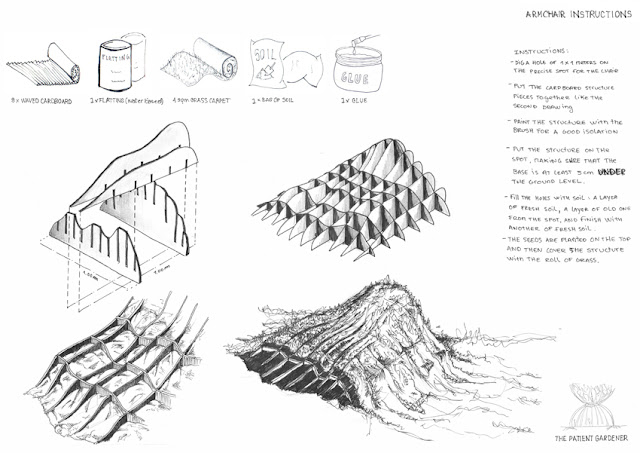 ARMCHAIR INSTRUCTIONS
FLATTING
SOIL
GLUE
8x WAVED CARDBOARD
1x FLATTING (water based)
4 sqm GRASS CARPET
2x BAG OF SOIL
1x GLUE
INSTRUCTIONS:
- DIG A HOLE OF 1x1 METERS ON
THE PRECISE SPOT FOR THE CHAIR
- PUT THE CARDBOARD STRUCTURE
PIECES TOGETHER LIKE THE
SECOND DRAWING
- PAINT THE STRUCTURE WITH THE
BRUSH FOR A GOOD ISOLATION
- PUT THE STRUCTURE ON THE
SPOT, MAKING SURE THAT THE
BASE IS AT LEAST 5 cm UNDER
THE GROUND LEVEL.
- FILL THE HOLES WITH SOIL: A LAYER
OF FRESH SOIL, A LAYER OF OLD ONE
FROM THE SPOT, AND FINISH WITH
ANOTHER OF FRESH SOIL.
- THE SEEDS ARE PLANTED ON THE TOP
AND THEN COVER THE STRUCTURE
WITH THE ROLL OF GRASS.
THE PATIENT GARDENER